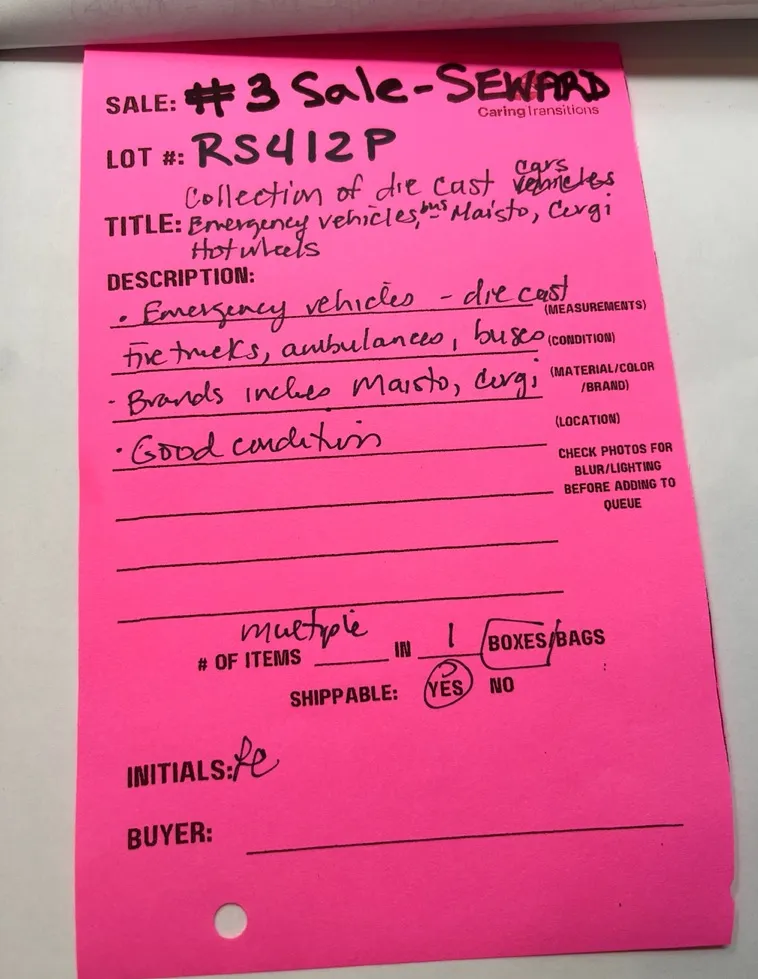 SALE: #3 Sale-SEWARD
Caring Transitions
LOT #: RS412P
cars
Collection of die cast vehicles
TITLE: Emergency vehicles, bus Maisto, Corgi
Hotwheels
DESCRIPTION:
• Emergency vehicles - die cast (MEASUREMENTS)
Fire trucks, ambulances, buses (CONDITION)
- Brands inches Maisto, Corgi (MATERIAL/COLOR
/BRAND)
(LOCATION)
• Good condition
CHECK PHOTOS FOR
BLUR/LIGHTING
BEFORE ADDING TO
QUEUE
# OF ITEMS multiple IN 1 BOXES/BAGS
SHIPPABLE: YES NO
INITIALS:
BUYER: